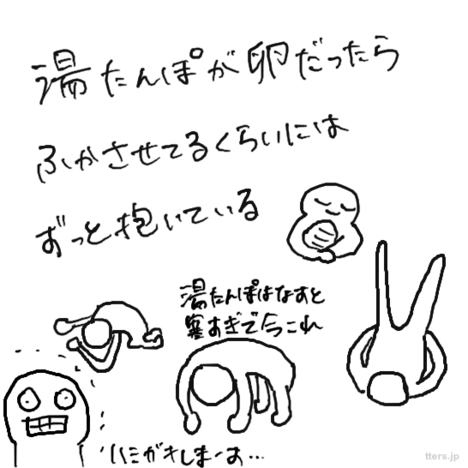 湯たんぽが卵だったら
ふかさせてるくらいには
ずっと抱いている
湯たんぽはなすと
寒すぎで今これ
ハミガキしまーす…
tters.jp